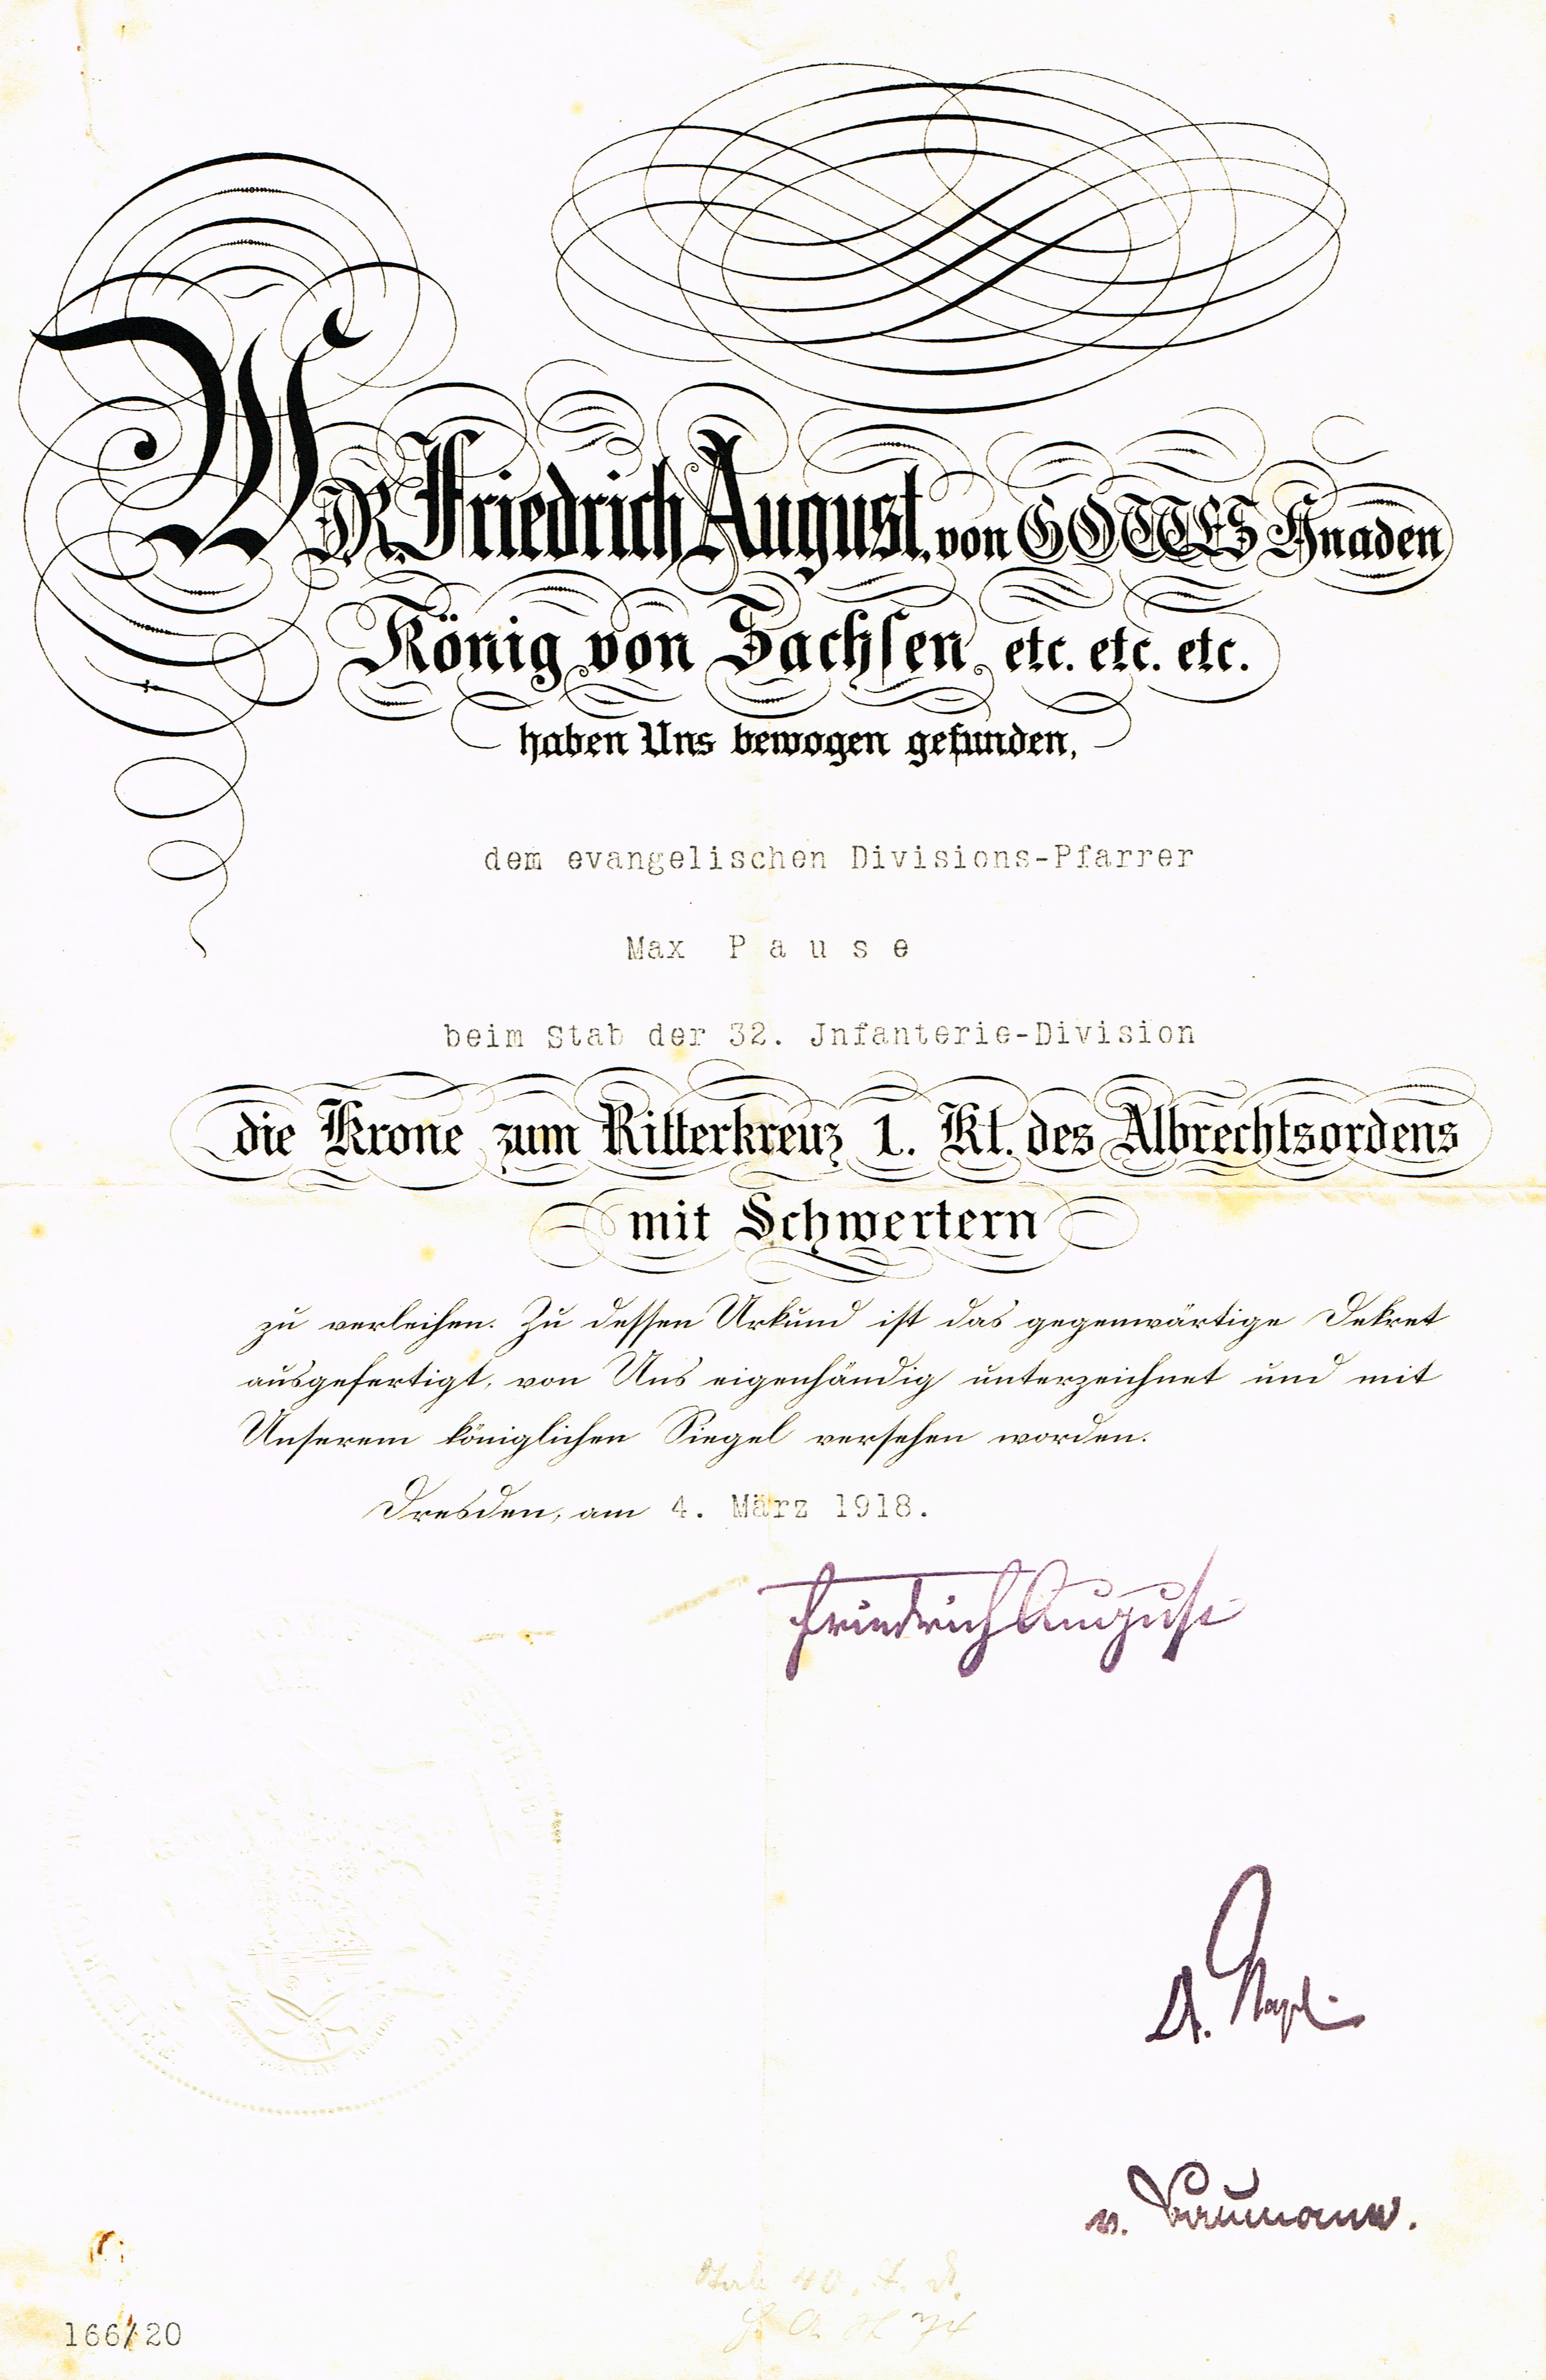 WIR, Friedrich August, von GOTTES Gnaden
König von Sachsen etc. etc. etc.
haben Uns bewogen gefunden,
dem evangelischen Divisions-Pfarrer
Max P a u s e
beim Stab der 32. Jnfanterie-Division
die Krone zum Ritterkreuz 1. Kl. des Albrechtsordens
mit Schwertern
zu verleihen. Zu dessen Urkund ist das gegenwärtige Dekret
ausgefertigt, von Uns eigenhändig unterzeichnet und mit
Unserem königlichen Siegel versehen worden.
Dresden, am 4. März 1918.
Friedrich August
166/20